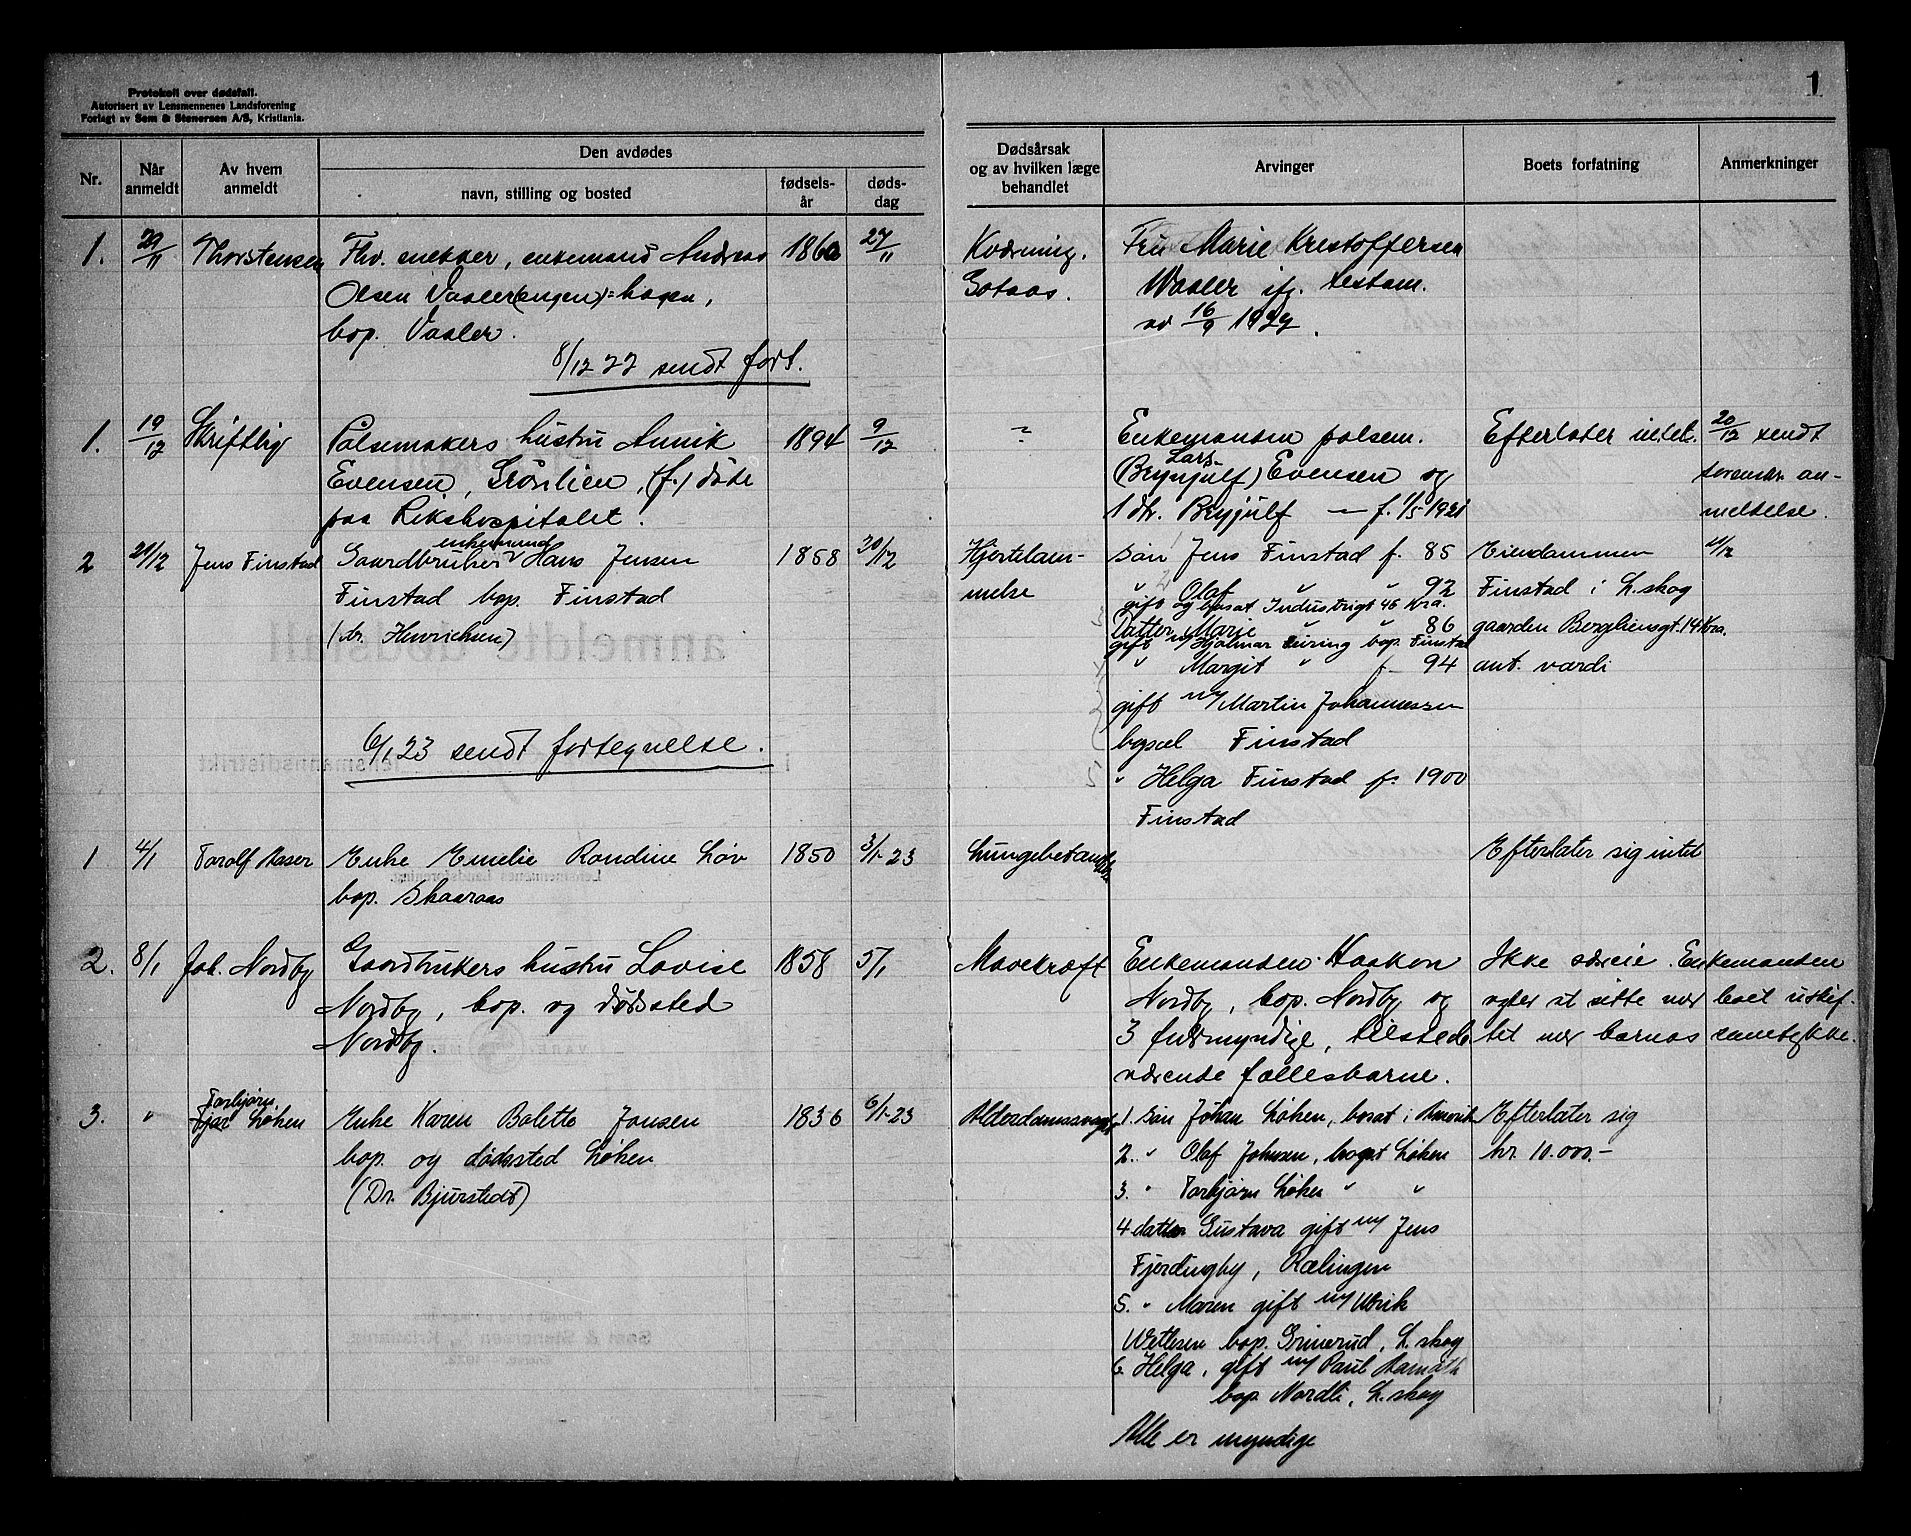 Protokoll over dødsfall.
Autorisert av Lensmennenes Landsforening
Forlagt av Sem & Stenersen A/S, Kristiania.
1
Nr.
Når
anmeldt
Av hvem
anmeldt
Den avdødes
navn, stilling og bosted
fødsels-
år
døds-
dag
Dødsårsak
og av hvilken læge
behandlet
Arvinger
Boets forfatning
Anmerkninger
1. 29/11 Thorstensen Fhv. snekker, enkemand Andreas 1860 27/11 Kværning. Fru Marie Krestoffersen
Olsen Vaaler(engen)=hagen, Gotaas. Waaler ifg. testam.
bop. Vaaler. av 16/9 1922.
8/12 22 sendt fort.
1. 19/12 Skriftlig Pølsemakers hustru Annik 1894 9/12 ? Enkemanden pølsem. Efterlater intet. 20/12 sendt
Lars
Evensen, Grønlien, (f.) døde (Brynjulf) Evensen og sorenskr. an-
paa Rikshospitalet. 1 dr. Brynjulf — f. 1/5 1921 meldelse.
enkemand
2 21/12 Jens Finstad Gaardbruker Hans Jensen 1858 20/12 Hjertelam- søn Jens Finstad f. 85 Eiendommen
Finstad bop. Finstad melse " Olaf " " 92 Finstad i L.skog
gift og bosat Industrigt 46 Kra.
(dr. Hinrichsen) Datter Marie " 86 gaarden Bergliensgt. 14 Kra.
gift m/Hjalmar bop. Finstad
" Margit " f. 94 ant. værdi
gift m/ Martin Johannessen
6/1 23 sendt fortegnelse. bopæl Finstad
" Helga Finstad f. 1900
Finstad
1 4/1 Torolf Aaser Enke Emelie Randine Løv 1850 3/1-23 Lungebetændelse Efterlater sig intet
bop. Skaaraas
2. 8/1 Joh. Nordby Gaardbrukers hustru Lovise 1858 5/1 Mavekræft Enkemanden Haakon Ikke særeie. Enkemanden
Nordby, bop. og dødssted Nordby, bop. Nordby og agter at sitte med boet uskif-
Nordby. 3 fuldmyndige, tilstede- tet med barnas samtykke.
værende fællesbarn.
Torbjørn
3. " Løken Enke Karen Bolette Jonsen 1836 6/1-23 Alderdomssvaghet 1. søn Johan Løken, bosat i Amerika Efterlater sig
bop. og dødssted Løken 2. " Olaf Johnsen, bosat Løken kr. 10.000.-
(Dr. Bjurstedt) 3. " Torbjørn Løken " "
4 datter Gustava gift m/ Jens
Fjerdingby, Rælingen
5. " Maren gift m/ Ulrik
Wetlesen bop. Grinerud, L.skog
6. Helga, gift m/ Paul Aamodt
bop. Nordli, L.skog
Alle er myndige